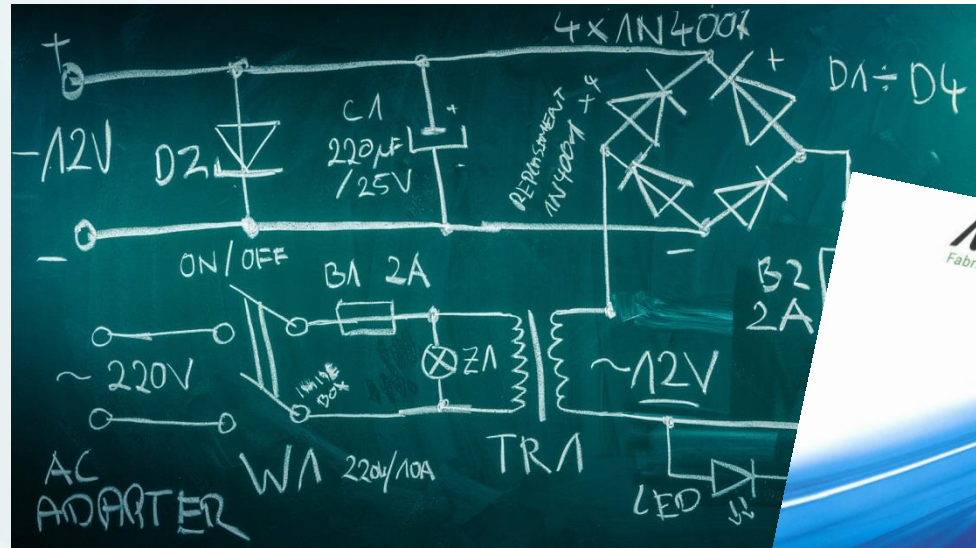 4x1N400
+
+
D1÷D4
-12V
DZ
C1
220µF
/25V
+
-
1N4001 x4
-
-
ON/OFF
B1 2A
B2
2A
~ 220V
INSIDE
BOX
Z1
~12V
AC
ADAPTER
W1 220V/10A
TR1
LED
Fabr